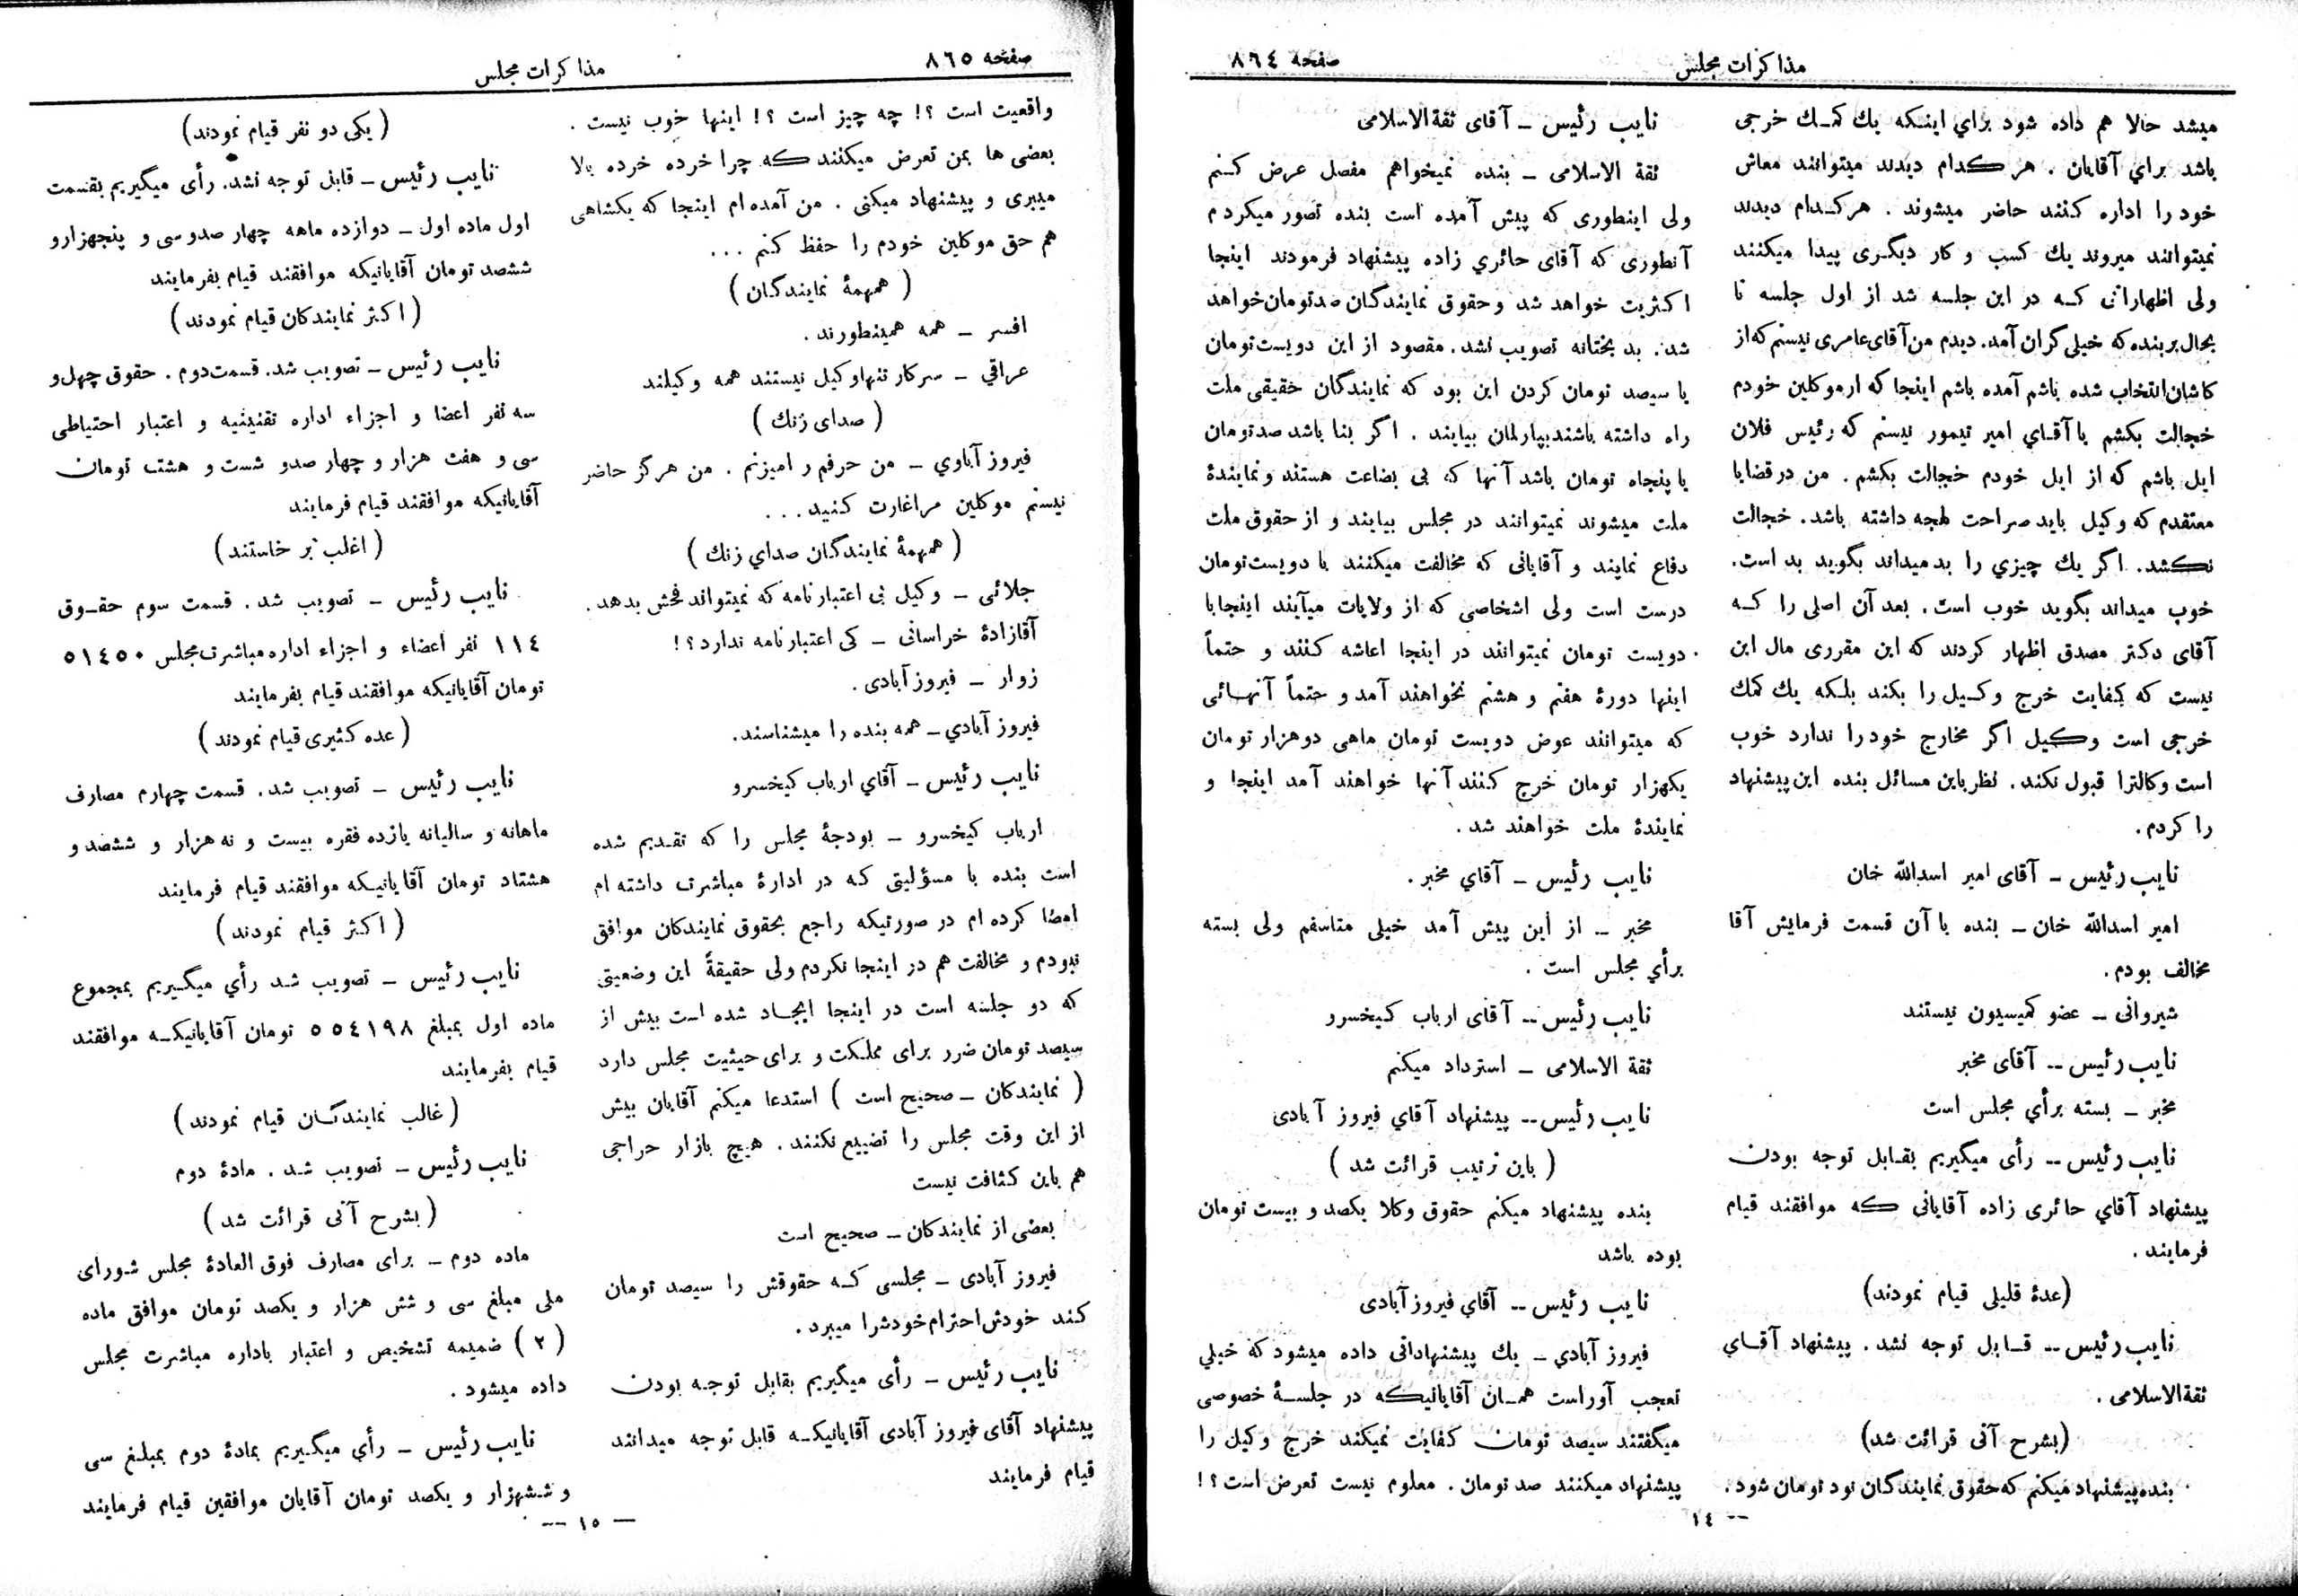 مذاکرات مجلس
صفحه ٨٦٤
میشد حالا هم داده شود برای اینکه یك کمك خرجی
باشد برای آقایان . هر کدام دیدند میتوانند معاش
خود را اداره کنند حاضر میشوند . هرکدام دیدند
نمیتوانند میروند یك کسب و کار دیگری پیدا میکنند
ولی اظهاراتی که در این جلسه شد از اول جلسه تا
بحال بر بنده که خیلی گران آمد. دیدم من آقای عامری نیستم که از
کاشان انتخاب شده باشم آمده باشم اینجا که از موکلین خودم
خجالت بکشم یا آقای امیر تیمور نیستم که رئیس فلان
ایل باشم که از ایل خودم خجالت بکشم . من در قضایا
معتقدم که وکیل باید صراحت لهجه داشته باشد. خجالت
نکشد. اگر یك چیزی را بد میداند بگوید بد است.
خوب میداند بگوید خوب است . بعد آن اصلی را که
آقای دکتر مصدق اظهار کردند که این مقرری مال این
نیست که کفایت خرج وکیل را بکند بلکه یك کمك
خرجی است وکیل اگر مخارج خود را ندارد خوب
است وکالترا قبول نکند. نظر باین مسائل بنده این پیشنهاد
را کردم.
نایب رئیس ــ آقای امیر اسدالله خان
امیر اسدالله خان ــ بنده با آن قسمت فرمایش آقا
مخالف بودم.
شیروانی ــ عضو کمیسیون نیستند
نایب رئیس ــ آقای مخبر
مخبر ــ بسته برأی مجلس است
نایب رئیس ــ رأی میگیریم بقابل توجه بودن
پیشنهاد آقای حائری زاده آقایانی که موافقند قیام
فرمایند .
(عدۀ قلیلی قیام نمودند)
نایب رئیس ــ قابل توجه نشد . پیشنهاد آقای
ثقةالاسلامی .
(بشرح آتی قرائت شد)
بنده پیشنهاد میکنم که حقوق نمایندگان نود تومان شود.
نایب رئیس ــ آقای ثقةالاسلامی
ثقة الاسلامی ــ بنده نمیخواهم مفصل عرض کنم
ولی اینطوری که پیش آمده است بنده تصور میکردم
آنطوری که آقای حائری زاده پیشنهاد فرمودند اینجا
اکثریت خواهد شد و حقوق نمایندگان صد تومان خواهد
شد. بدبختانه تصویب نشد. مقصود از این دویست تومان
یا سیصد تومان کردن این بود که نمایندگان حقیقی ملت
راه داشته باشند بپارلمان بیایند . اگر بنا باشد صد تومان
یا پنجاه تومان باشد آنها که بی بضاعت هستند و نمایندۀ
ملت میشوند نمیتوانند در مجلس بیایند و از حقوق ملت
دفاع نمایند و آقایانی که مخالفت میکنند با دویست تومان
درست است ولی اشخاصی که از ولایات میآیند اینجا با
دویست تومان نمیتوانند در اینجا اعاشه کنند و حتماً
اینها دورۀ هفتم و هشتم نخواهند آمد و حتماً آنهائی
که میتوانند عوض دویست تومان ماهی دوهزار تومان
یکهزار تومان خرج کنند آنها خواهند آمد اینجا و
نمایندۀ ملت خواهند شد .
نایب رئیس ــ آقای مخبر .
مخبر ــ از این پیش آمد خیلی متاسفم ولی بسته
برأی مجلس است .
نایب رئیس ــ آقای ارباب کیخسرو
ثقة الاسلامی ــ استرداد میکنم
نایب رئیس ــ پیشنهاد آقای فیروز آبادی
( باین ترتیب قرائت شد )
بنده پیشنهاد میکنم حقوق وکلا یکصد و بیست تومان
بوده باشد
نایب رئیس ــ آقای فیروز آبادی
فیروز آبادی ــ یك پیشنهاداتی داده میشود که خیلی
تعجب آوراست همان آقایانیکه در جلسۀ خصوصی
میگفتند سیصد تومان کفایت نمیکند خرج وکیل را
پیشنهاد میکنند صد تومان. معلوم نیست تعرض است ؟ !
ــ ١٤
صفحه ٨٦٥
مذاکرات مجلس
واقعیت است ؟! چه چیز است ؟! اینها خوب نیست .
بعضی ها بمن تعرض میکنند که چرا خرده خرده بالا
میبری و پیشنهاد میکنی . من آمده ام اینجا که یکشاهی
هم حق موکلین خودم را حفظ کنم ...
( همهمۀ نمایندگان )
افسر ــ همه همینطورند.
عراقی ــ سرکار تنها وکیل نیستند همه وکیلند
( صدای زنك )
فیروز آباوی ــ من حرفم را میزنم . من هرگز حاضر
نیستم موکلین مرا غارت کنید...
( همهمۀ نمایندگان صدای زنك )
جلائی ــ وکیل بی اعتبار نامه که نمیتواند فحش بدهد.
آقازادۀ خراسانی ــ کی اعتبار نامه ندارد؟!
زوار ــ فیروز آبادی.
فیروز آبادی ــ همه بنده را میشناسند.
نایب رئیس ــ آقای ارباب کیخسرو
ارباب کیخسرو ــ بودجۀ مجلس را که تقدیم شده
است بنده با مسؤلیتی که در ادارۀ مباشرت داشته ام
امضا کرده ام در صورتیکه راجع بحقوق نمایندکان موافق
نبودم و مخالفت هم در اینجا نکردم ولی حقیقةً این وضعیتی
که دو جلسه است در اینجا ایجاد شده است بیش از
سیصد تومان ضرر برای مملکت و برای حیثیت مجلس دارد
( نمایندکان ــ صحیح است ) استدعا میکنم آقایان بیش
از این وقت مجلس را تضییع نکنند . هیچ بازار حراجی
هم باین کثافت نیست
بعضی از نمایندکان ــ صحیح است
فیروز آبادی ــ مجلسی که حقوقش را سیصد تومان
کند خودش احترام خودشرا میبرد.
نایب رئیس ــ رأی میگیریم بقابل توجه بودن
پیشنهاد آقای فیروز آبادی آقایانیکه قابل توجه میدانند
قیام فرمایند
(یکی دو نفر قیام نمودند)
نایب رئیس ــ قابل توجه نشد. رأی میگیریم بقسمت
اول ماده اول ــ دوازده ماهه چهار صدو سی و پنجهزارو
ششصد تومان آقایانیکه موافقند قیام بفرمایند
(اکثر نمایندکان قیام نمودند)
نایب رئیس ــ تصویب شد. قسمت دوم . حقوق چهل و
سه نفر اعضا و اجزاء اداره تقنینیه و اعتبار احتیاطی
سی و هفت هزار و چهار صدو شست و هشت تومان
آقایانیکه موافقند قیام فرمایند
(اغلب بر خاستند)
نایب رئیس ــ تصویب شد . قسمت سوم حقوق
١١٤ نفر اعضاء و اجزاء اداره مباشرت مجلس ٥١٤٥٠
تومان آقایانیکه موافقند قیام بفرمایند
(عده کثیری قیام نمودند)
نایب رئیس ــ تصویب شد. قسمت چهارم مصارف
ماهانه و سالیانه یازده فقره بیست و نه هزار و ششصد و
هشتاد تومان آقایانیکه موافقند قیام فرمایند
( اکثر قیام نمودند)
نایب رئیس ــ تصویب شد رأی میگیریم بمجموع
ماده اول بمبلغ ٥٥٤١٩٨ تومان آقایانیکه موافقند
قیام بفرمایند
(غالب نمایندگان قیام نمودند)
نایب رئیس ــ تصویب شد . مادۀ دوم
(بشرح آتی قرائت شد)
ماده دوم ــ برای مصارف فوق العادۀ مجلس شورای
ملی مبلغ سی و شش هزار و یکصد تومان موافق ماده
(٢) ضمیمه تشخیص و اعتبار باداره مباشرت مجلس
داده میشود .
نایب رئیس ــ رأی میگیریم بمادۀ دوم بمبلغ سی
و ششهزار و یکصد تومان آقایان موافقین قیام فرمایند
ــ ١٥ ــ